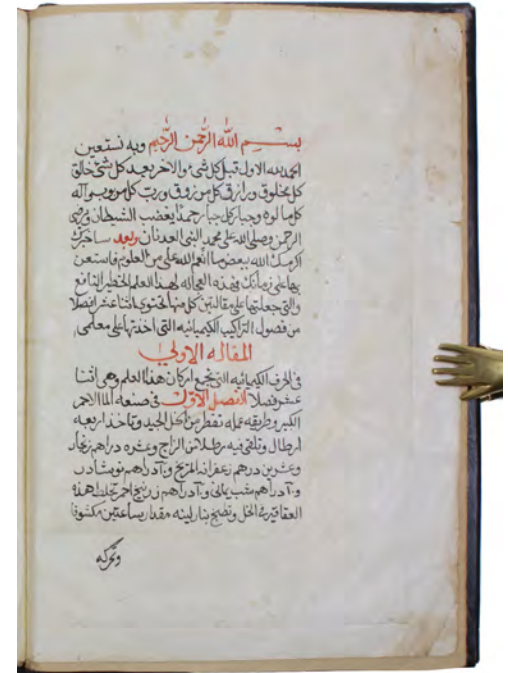 بسم الله الرحمن الرحيم وبه نستعين
الحمد لله الاول قبل كل شئ والاخر بعد كل شئ خالق
كل مخلوق ورازق كل مرزوق ورب كل مربوب واله
كل مالوه وجبار كل جبار حمدا يغضب الشيطان ويرضى
الرحمن وصلى الله على محمد النبى العدنان وبعد ساخبرك
اكرمك الله ببعض ما انعم الله على من العلوم فاستعن
بها على زمانك فهذه العجاله لهذا العلم الخطير النافع
والتى جعلتها على مقالتين كل منها تحتوى اثنا عشر فصلا
من فصول التراكيب الكيميائيه التى اخذتها على معلمى
المقاله الاولى
فى الحرف الكيمائيه التى تجمع اركان هذا العلم وهى اثنا
عشر فصلا الفصل الاول فى صنعه الما الاحمر
الكبير وطريقه عمله تقطر من الخل الجيد وتاخذ اربعه
ارطال وتلقى فيه رطلا من الزاج وعشره دراهم زنجار
وعشرين درهم زعفران المريخ و١٠ دراهم نوشادر
و١٠ دراهم شب يمانى و١٠ دراهم زرنيخ احمر تجعل هذه
العقاقير فى الخل وتطبخ بنار لينه مقدار ساعتين مكشوفا
وتحركه